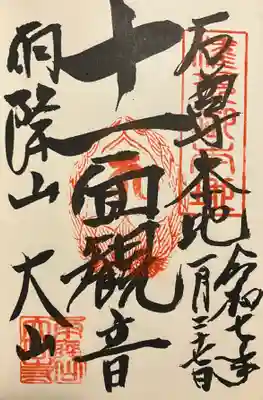 石尊本地
令和七年
一月二十七日
十一面観音
雨降山
大山